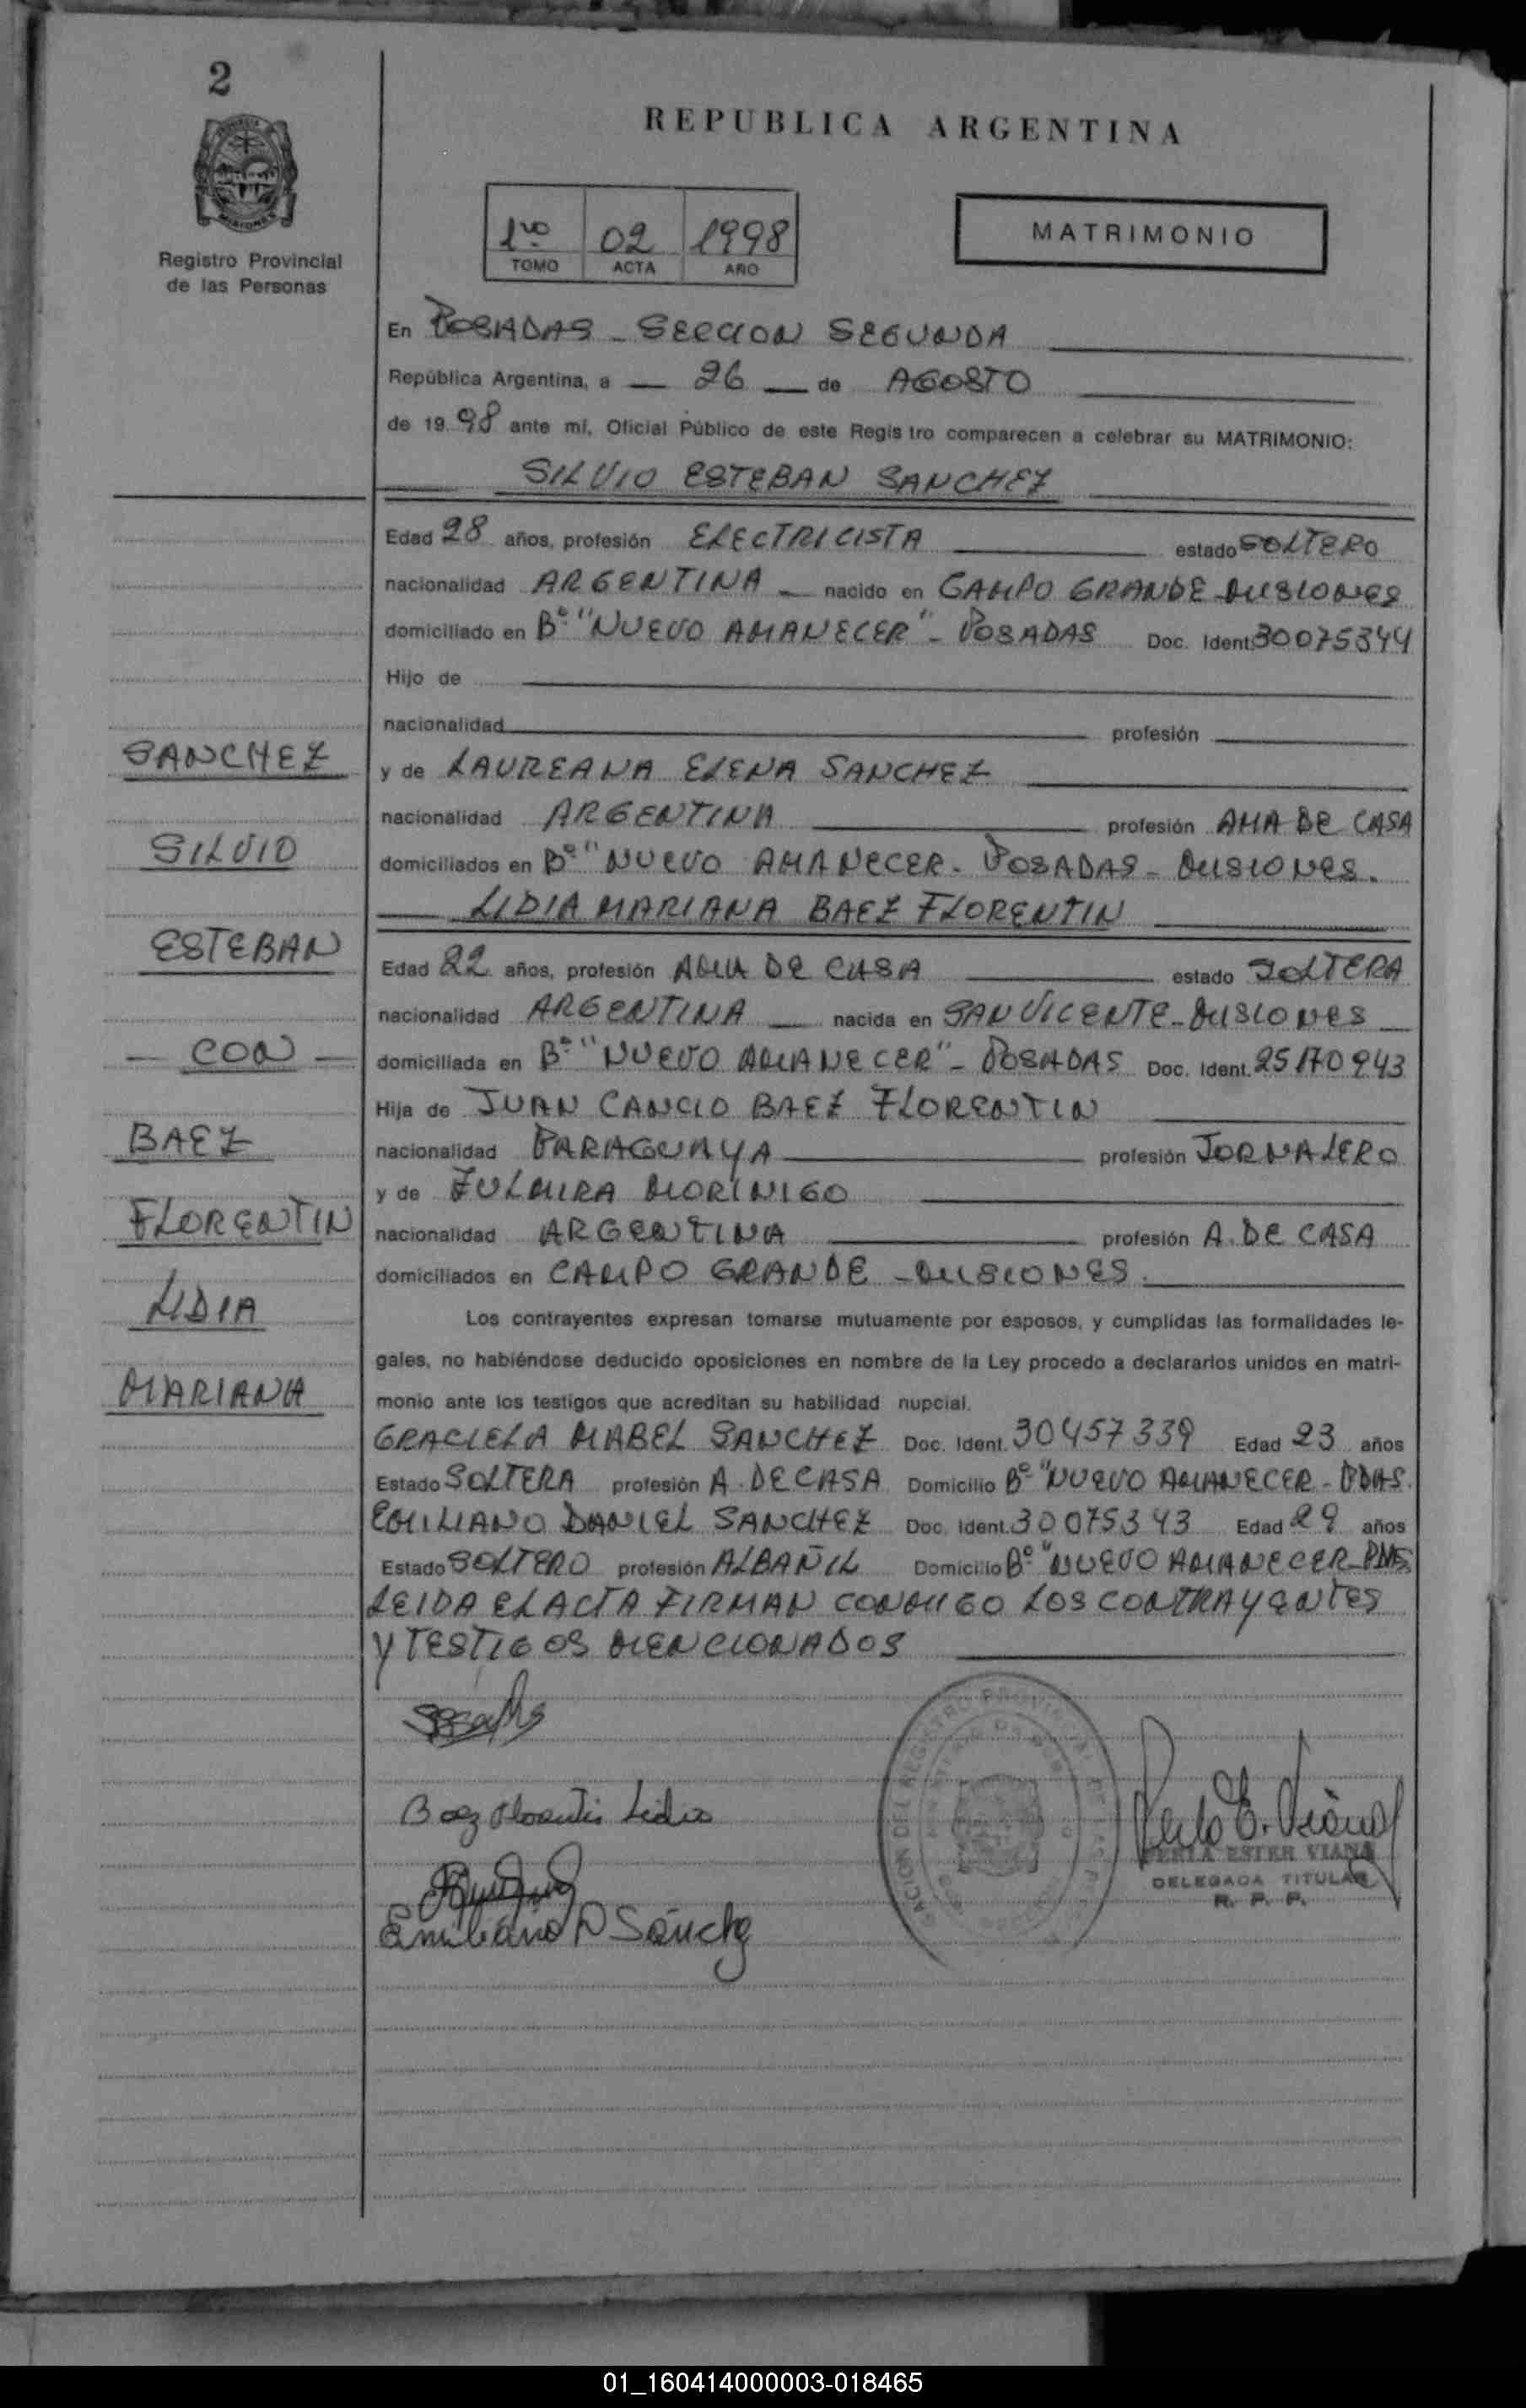 2
REPUBLICA ARGENTINA
Registro Provincial
de las Personas
1ro 02 1998
TOMO ACTA AÑO
MATRIMONIO
En POSADAS - SECCION SEGUNDA
República Argentina, a 26 de AGOSTO
de 19 98 ante mí, Oficial Público de este Regis tro comparecen a celebrar su MATRIMONIO:
SILVIO ESTEBAN SANCHEZ
Edad 28 años, profesión ELECTRICISTA estado SOLTERO
nacionalidad ARGENTINA nacido en CAMPO GRANDE-MISIONES
domiciliado en Bº "NUEVO AMANECER" - POSADAS Doc. Ident. 30075344
Hijo de
nacionalidad profesión
y de LAUREANA ELENA SANCHEZ
nacionalidad ARGENTINA profesión AMA DE CASA
domiciliados en Bº "NUEVO AMANECER - POSADAS - MISIONES.
LIDIA MARIANA BAEZ FLORENTIN
Edad 22 años, profesión AMA DE CASA estado SOLTERA
nacionalidad ARGENTINA nacida en SAN VICENTE-MISIONES
domiciliada en Bº "NUEVO AMANECER" - POSADAS Doc. Ident. 25170943
Hija de JUAN CANCIO BAEZ FLORENTIN
nacionalidad PARAGUAYA profesión JORNALERO
y de ZULMIRA MORINIGO
nacionalidad ARGENTINA profesión A. DE CASA
domiciliados en CAMPO GRANDE - MISIONES.
Los contrayentes expresan tomarse mutuamente por esposos, y cumplidas las formalidades le-
gales, no habiéndose deducido oposiciones en nombre de la Ley procedo a declararlos unidos en matri-
monio ante los testigos que acreditan su habilidad nupcial.
GRACIELA MABEL SANCHEZ Doc. Ident. 30457339 Edad 23 años
Estado SOLTERA profesión A. DE CASA Domicilio Bº "NUEVO AMANECER - PDAS.
EMILIANO DANIEL SANCHEZ Doc. Ident. 30075343 Edad 29 años
Estado SOLTERO profesión ALBAÑIL Domicilio Bº "NUEVO AMANECER-
LEIDA EL ACTA FIRMAN CONMIGO LOS CONTRAYENTES
Y TESTIGOS MENCIONADOS
SANCHEZ
SILVIO
ESTEBAN
- CON -
BAEZ
FLORENTIN
LIDIA
MARIANA
Baez Florentin Lidia
Emiliano D Sánchez
Perla E. Viana
PERLA ESTER VIANA
DELEGADA TITULAR
R. P. P.
01_160414000003-018465